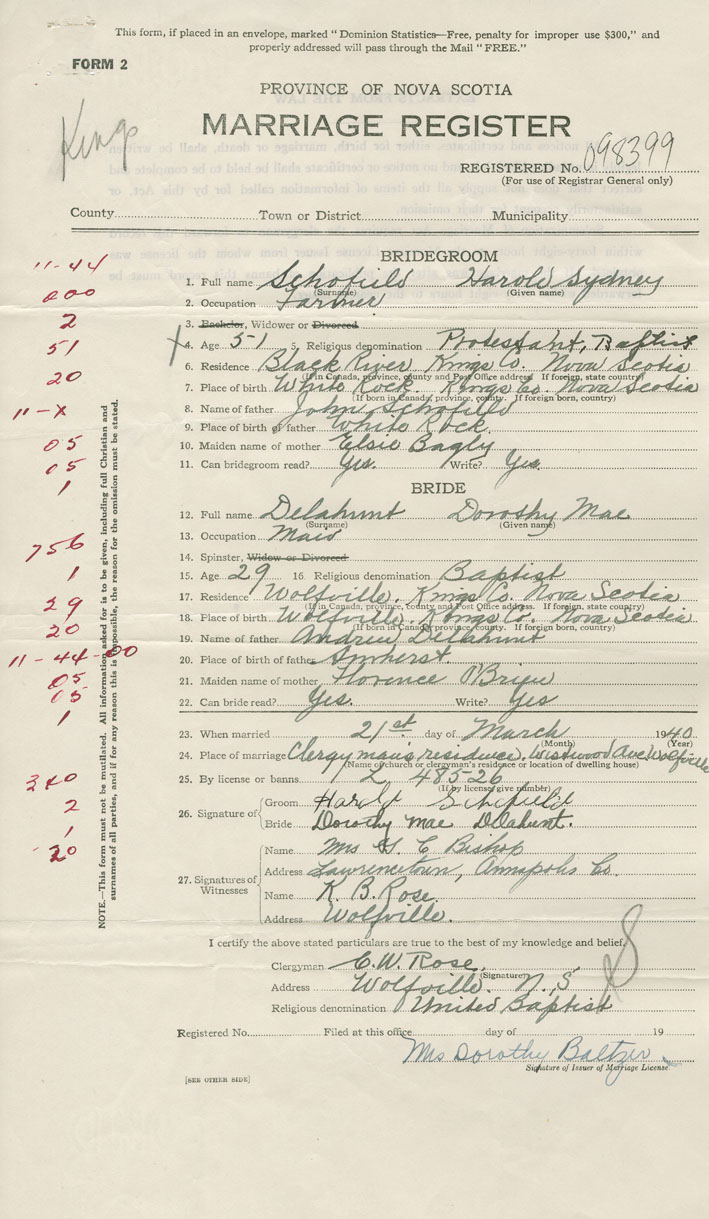 This form, if placed in an envelope, marked "Dominion Statistics—Free, penalty for improper use $300," and
properly addressed will pass through the Mail "FREE."
FORM 2
PROVINCE OF NOVA SCOTIA
Kings
MARRIAGE REGISTER
REGISTERED No. 098399
(For use of Registrar General only)
County Town or District Municipality
BRIDEGROOM
11-44
1. Full name Schofield Harold Sydney
(Surname) (Given name)
000
2. Occupation Farmer
2
3. Bachelor, Widower or Divorced
51
X 4. Age 51 5. Religious denomination Protestant, Baptist
20
6. Residence Black River Kings Co. Nova Scotia
(If in Canada, province, county and Post Office address. If foreign, state country)
7. Place of birth White Rock. Kings Co. Nova Scotia
(If born in Canada, province, county. If foreign born, country)
11-X
8. Name of father John Schofield
9. Place of birth of father White Rock.
05
10. Maiden name of mother Elsie Bagly
05
11. Can bridegroom read? Yes. Write? Yes.
1
BRIDE
12. Full name Delahunt Dorothy Mae
(Surname) (Given name)
13. Occupation Maid
756
14. Spinster, Widow or Divorced
1
15. Age 29 16. Religious denomination Baptist
29
17. Residence Wolfville. Kings Co. Nova Scotia
(If in Canada, province, county and Post Office address. If foreign, state country)
20
18. Place of birth Wolfville. Kings Co. Nova Scotia
(If born in Canada, province, county. If foreign born, country)
19. Name of father Andrew Delahunt
11-44-00
20. Place of birth of father Amherst.
05
21. Maiden name of mother Florence O'Brien
05
22. Can bride read? Yes. Write? Yes
1
23. When married 21st day of March 1940
(Month) (Year)
24. Place of marriage Clergyman's residence, Westwood Ave. Wolfville
(Name of church or clergymen's residence or location of dwelling house)
340
25. By license or banns L 48526
(If by license, give number)
2
26. Signature of Groom Harold Schofield
1
Bride Dorothy Mae Delahunt.
20
27. Signatures of Witnesses
Name Mrs G. C Bishop
Address Lawrencetown, Annapolis Co.
Name K. B. Rose.
Address Wolfville.
NOTE.—This form must not be mutilated. All information asked for is to be given, including full Christian and
surnames of all parties, and if for any reason this is impossible, the reason for the omission must be stated.
I certify the above stated particulars are true to the best of my knowledge and belief.
Clergyman C. W. Rose,
(Signature)
Address Wolfville. N.S
Religious denomination United Baptist
Registered No. Filed at this office day of 19
Mrs Dorothy Baltzer
Signature of Issuer of Marriage License
[SEE OTHER SIDE]